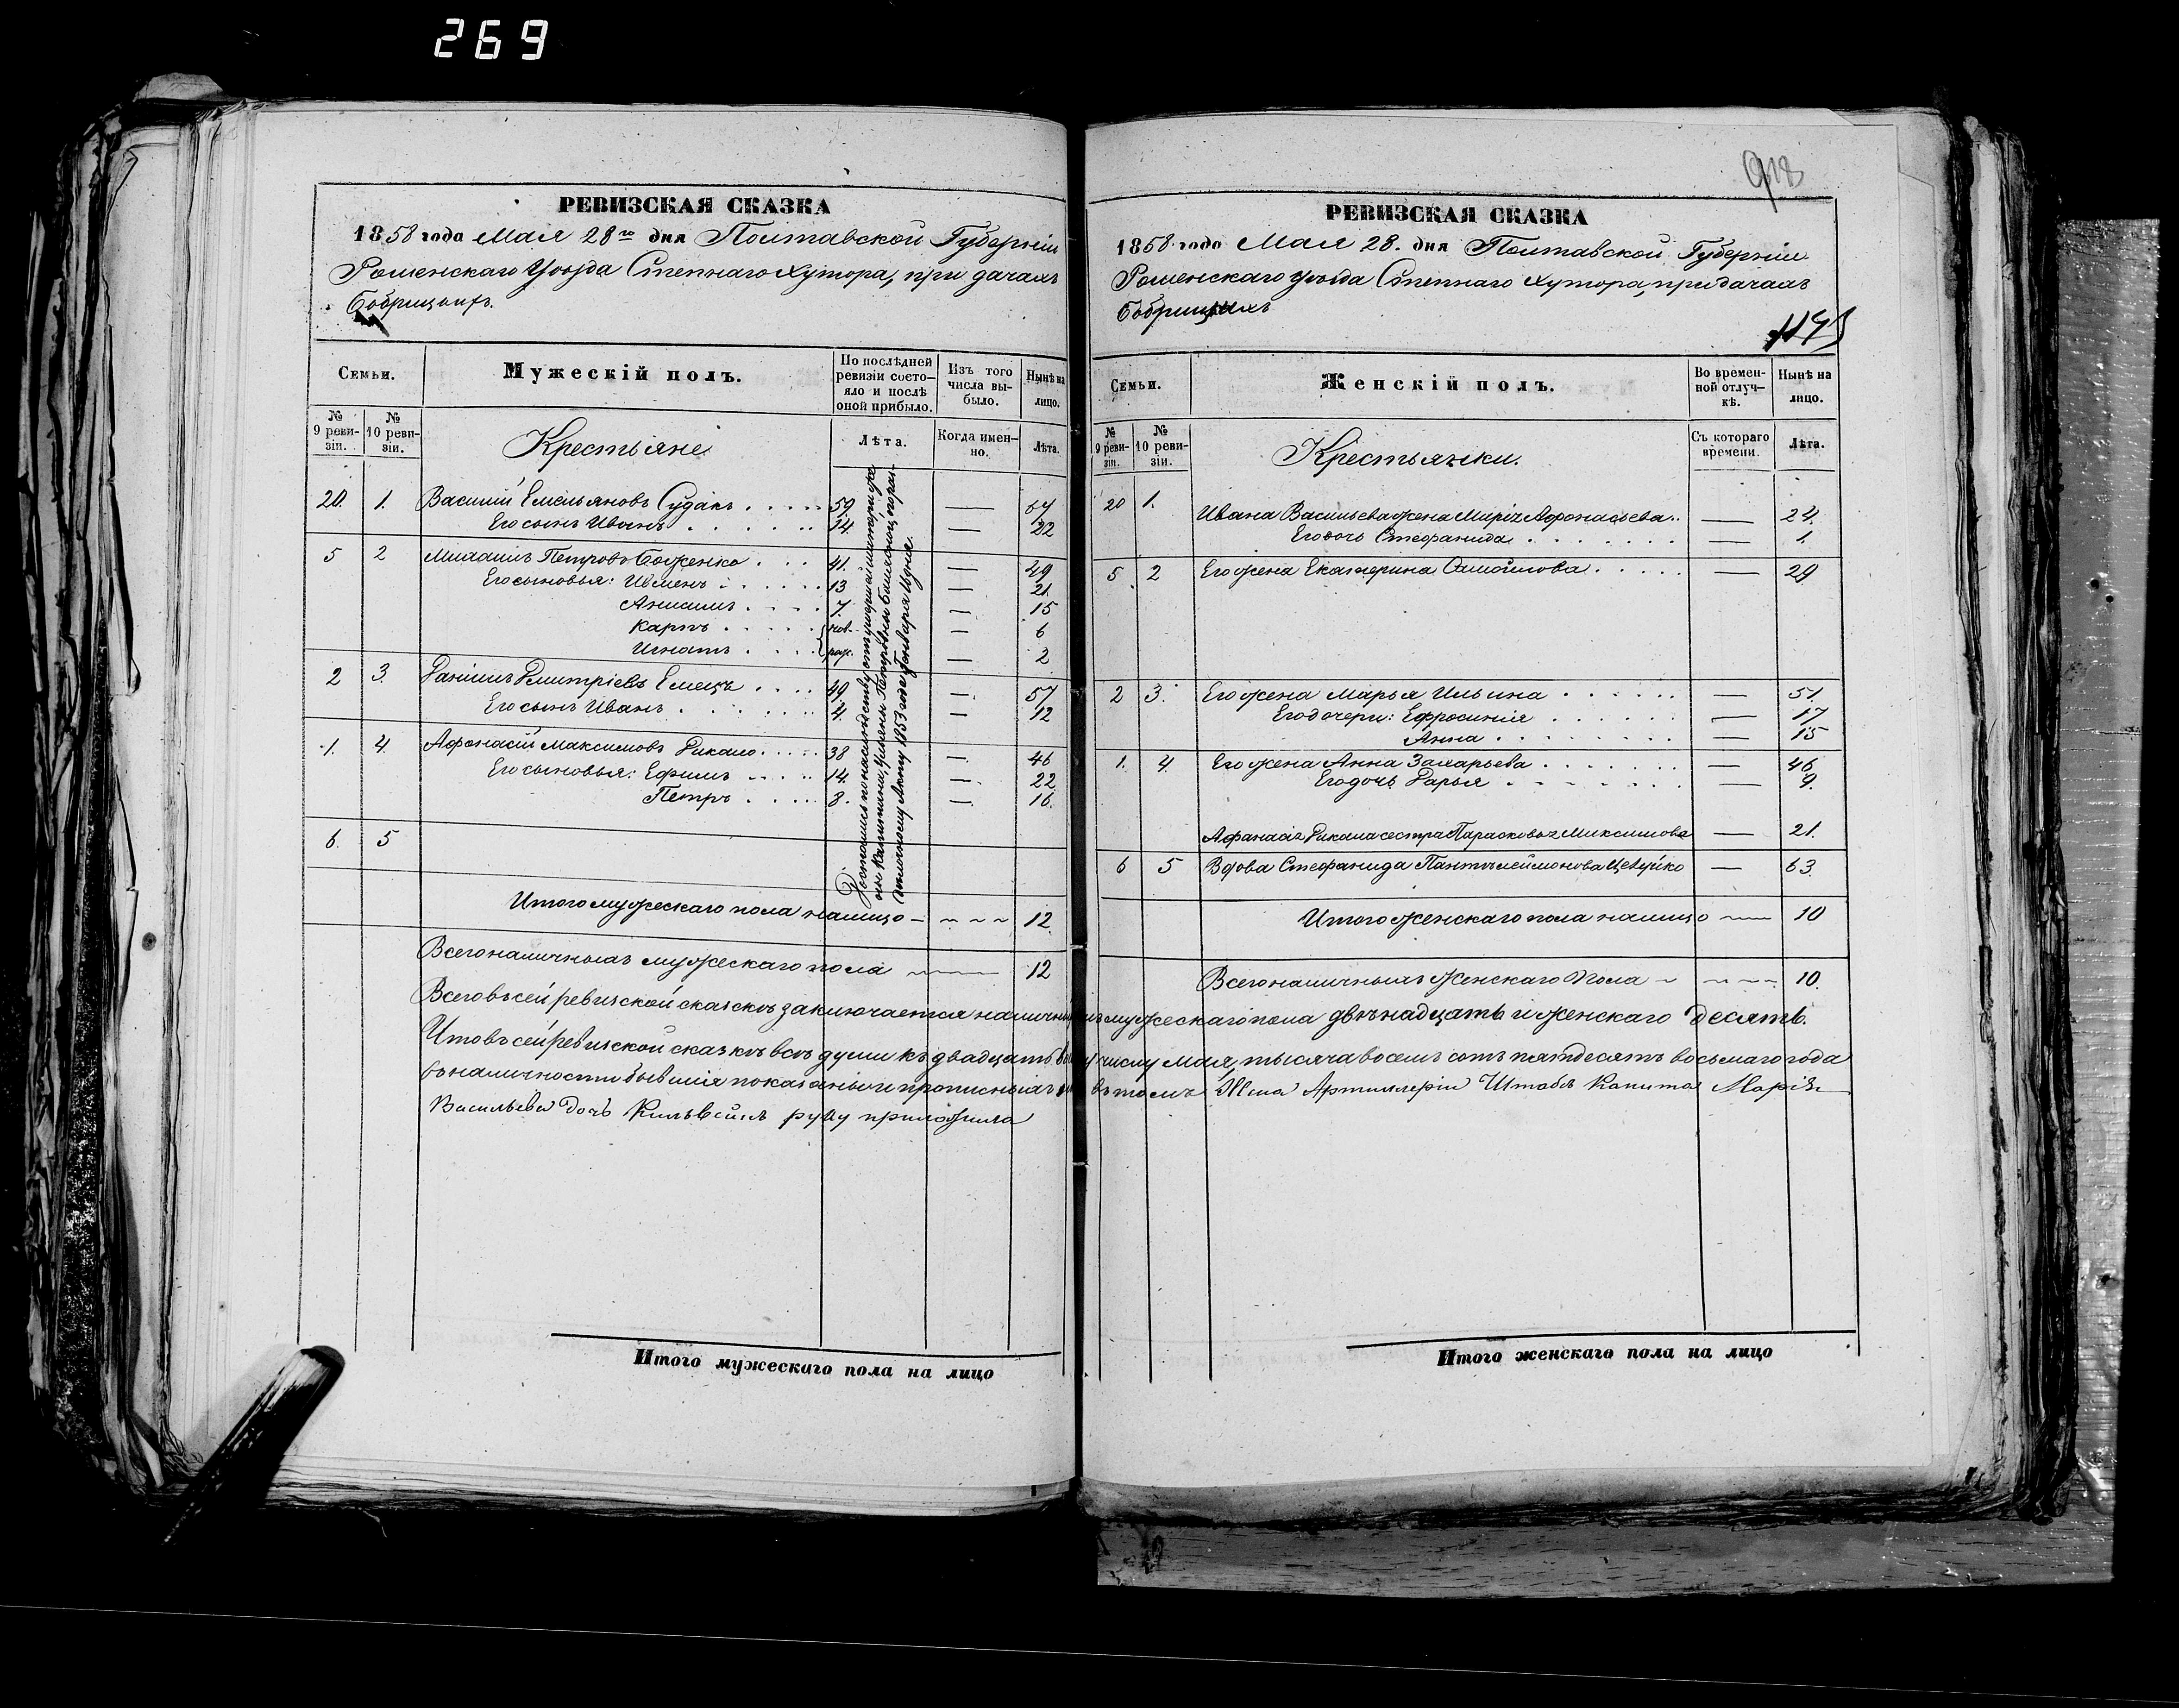 269
РЕВИЗСКАЯ СКАЗКА
1858 года Мая 28го дня Полтавской Губерніи
Роменскаго Уѣзда Степнаго хутора, при дачахъ
Бобрицкихъ.
Семьи.
Мужескій полъ.
По послѣдней ревизіи состо-яло и послѣ оной прибыло.
Изъ того числа вы-было.
Нынѣ на лицо.
№ 9 реви-зіи.
№ 10 реви-зіи.
Крестьяне
Лѣта.
Когда имен-но.
Лѣта.
20. 1. Василій Емельяновъ Судакъ . . . . 59. — 67
Его сынъ Иванъ . . . . . . 14. — 22
5 2 Михаилъ Петровъ Боженко . . . 41. — 49
Его сыновья: . . . . . 13 — 21.
. . . . 7. — 15
Карпъ . . . . . нов- — 6
Игнатъ . . . . рож. — 2
2 3. Даніилъ Дмитріевъ Емецъ . . . . 49. — 57
Его сынъ Иванъ . . . . . . 4. — 12
1. 4. Афонасій Максимовъ Рикало . . . . 38 — 46
Его сыновья: Ефимъ . . . . 14. — 22
Петръ . . . . . 8. — 16.
6. 5
Достались по наслѣдству
1853 года Генваря
Итого мужескаго пола налицо — 12.
Всего наличныхъ мужескаго пола 12
РЕВИЗСКАЯ СКАЗКА
1858 года Мая 28. дня Полтавской Губерніи
Роменскаго уѣзда Степнаго хутора, при дачахъ
Бобрицкихъ
Семьи.
Женскій полъ.
Во времен-ной отлуч-кѣ.
Нынѣ на лицо.
№ 9 реви-зіи.
№ 10 реви-зіи.
Крестьянки.
Съ котораго времени.
Лѣта.
20 1.
Ивана Васильева жена Марія Афонасьева . . — 24.
Его дочь Стефанида . . . . . . . — 1.
5 2 Его жена Екатерина Самойлова . . . . . — 29
2 3. Его жена Марья Ильина . . . . . . — 51.
Его дочери: Ефросинія . . . . . . — 17
Анна . . . . . . . . — 15
1. 4. Его жена Анна Захарьева . . . . . . . — 46
Его дочь Дарья . . . . . . . — 9.
Афанасія Рикала сестра Парасковья Максимова — 21.
6 5 Вдова Стефанида Пантелеймонова — 63.
Итого женскаго пола налицо 10
Всего наличныхъ женскаго пола 10.
Всего въ сей ревизской сказкѣ заключается наличныхъ мужескаго пола двѣнадцать и женскаго десять.
Что въ сей ревизской сказкѣ всѣ души къ двадцать числу мая, тысяча восемь сотъ пятдесятъ восьмаго года
въ наличности бывшія показаны и прописныхъ въ томъ Артиллеріи Штабъ Капитана Марія
Васильева дочь руку приложила
Итого мужескаго пола на лицо
Итого женскаго пола на лицо